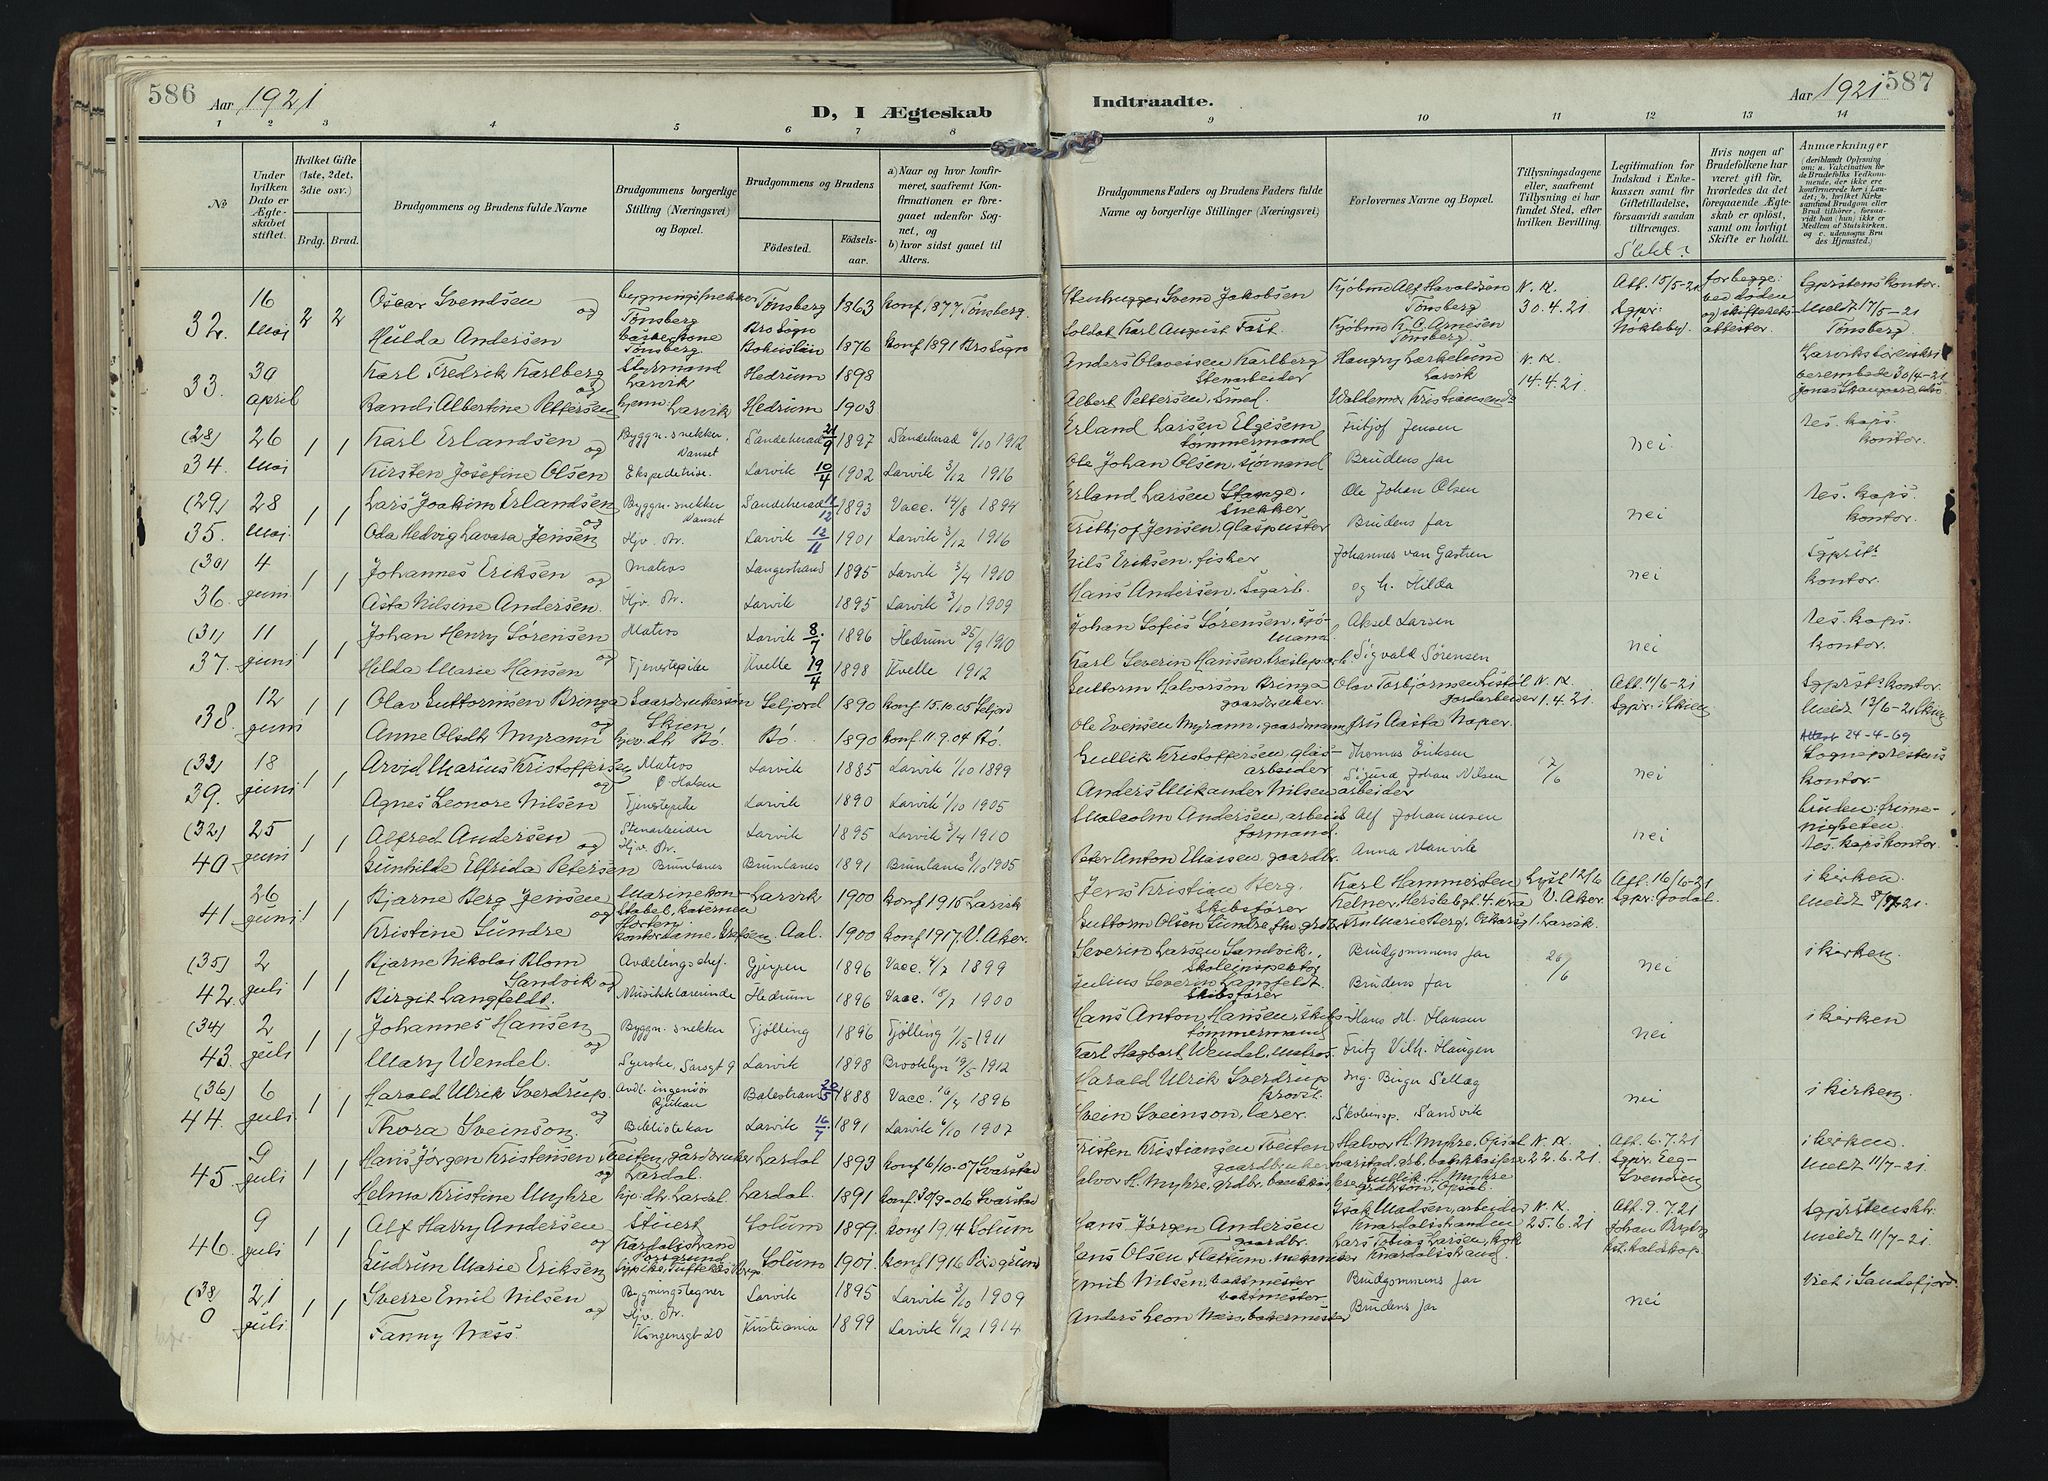 586
Aar 1921
D, I Ægteskab
Indtraadte.
Aar 1921
587
1 2 3 4 5 6 7 8 9 10 11 12 13 14
No
Under hvilken Dato er Ægteskabet stiftet.
Hvilket Gifte (1ste, 2det, 3die osv.)
Brdg. Brud.
Brudgommens og Brudens fulde Navne
Brudgommens borgerlige Stilling (Næringsvei) og Bopæl.
Brudgommens og Brudens
Fødested.
Fødselsaar.
a) Naar og hvor konfirmeret, saafremt Konfirmationen er foregaaet udenfor Sognet, og
b) hvor sidst gaaet til Alters.
Brudgommens Faders og Brudens Faders fulde Navne og borgerlige Stillinger (Næringsvei)
Forlovernes Navne og Bopæl.
Tillysningsdagene eller, saafremt Tillysning ei har fundet Sted, efter hvilken Bevilling.
Legitimation for Indskud i Enkekassen samt for Giftetilladelse, forsaavidt saadan tiltrænges.
Slekt?
Hvis nogen af Brudefolkene har været gift før, hvorledes da det foregaaende Ægteskab er opløst, samt om lovligt Skifte er holdt.
Anmærkninger
(deriblandt Oplysning om: a. Vakcination for de Brudefolks Vedkommende, der ikke ere konfirmerede her i Landet; b. hvilket Kirkesamfund Brudgom eller Brud tilhører, forsaavidt han (hun) ikke er Medlem af Statskirken, og c. udensogns Brudes Hjemsted.)
32. 16 Mai 2 2 Oscar Svendsen og bygningssnekker Tønsberg Tønsberg 1863 konf. 1877 Tønsberg. Stenhugger Svend Jakobsen Kjøbmd Alf Havaldsen Tønsberg N.K. 30.4.21 Att. 15/5-21 Sgpr. Nøkleby. for begge: ved døden og skifterets attester. Sgprstens kontor. Meldt 17/5-21 Tønsberg
Hulda Andersen Tønsberg Bro Sogn Bohuslän 1876 konf 1891 Bro Sogn Soldat Karl August Fast Kjøbmd K. O. Arnesen Tønsberg
33. 30 april Karl Fredrik Karlberg og Styrmand Larvik Hedrum 1898 Anders Olaveisen Karlberg Stenarbeider Haugry Lærkelund Larvik N.K. 14.4.21.
Randi Albertine Pettersen hjem: Larvik Hedrum 1903 Albert Pettersen, Smed. Waldemar Kristiansen
(28) 34. 26 Mai 1 1 Karl Erlandsen og Byggn. snekker, Danset Sandeherad 21/9 1897 Sandeherad 6/10 1912 Erland Larsen Elgesem tømmermand Fritjof Jensen nei res. kaps. kontor.
Kirsten Josefine Olsen Ekspeditrise. Larvik 10/4 1902 Larvik 3/12 1916 Ole Johan Olsen, sjømand Brudens far
(29) 35. 28 Mai 1 1 Lars Joakim Erlandsen og Byggn. snekker Danset Sandeherad 1893 Vacc. 14/8 1894 Erland Larsen Stange. Snekker Ole Johan Olsen nei res. kaps. kontor.
Oda Hedvig Lavara Jensen Hjv. Dr. Larvik 12/11 1901 Larvik 3/12 1916 Fritbjof Jensen, glaspuster Brudens far
(30) 36. 4 juni 1 1 Johannes Eriksen og Matros Langestrand 1895 Larvik 3/4 1910 Nils Eriksen, fisker Johannes van Gastren nei Sgprsts kontor.
Asta Nilsine Andersen. Hjv. Dr. Larvik 1895 Larvik 3/10 1909 Hans Andersen, Sagarb. og h. Hilda
(31) 37. 11 juni 1 1 Johan Henry Sørensen og Matros Larvik 8/7 1896 Hedrum 25/9 1910 Johan Sofus Sørensen, sjømand Aksel Larsen nei res. kaps. kontor.
Hilda Marie Hansen Tjenestepike Kvelle 19/4 1898 Kvelle 1912 Karl Severin Hansen, Sigvald Sørensen
38. 12 juni 1 1 Olav Guttormsen Bringa og Gaardbrukersøn Skien Seljord 1890 konf. 15.10.05 Seljord Guttorm Halvorson Bringa gaardbruker Olav Torbjørnsen Listøl Jordarbeider N.K. 1.4.21. Att. 11/6-21 Sgpr. i Skien Sgprsts kontor. Meldt 13/6-21 Skien
Anne Olsdtr Myrann hjev. dtr. Bø. Bø. 1890 konf. 11.9.04 Bø. Ole Evensen Myrann, gaardmann fru Aasta Naper. Attest 24-4-69
(33) 39. 18 juni 1 1 Arvid Marius Kristoffersen og Matros Ø. Halsen Larvik 1885 Larvik 1/10 1899 Gullik Kristoffersen, glasarbeider Thomas Eriksen 7/6 nei Sogneprestens kontor.
Agnes Leonore Nilsen Tjenestepike Larvik 1890 Larvik 1/10 1905 Anders Mikander Nilsen arbeider Sigurd Johan Nilsen
(32) 40 25 juni 1 1 Alfred Andersen og Stenarbeider Larvik 1895 Larvik 3/4 1910 Malcolm Andersen, arbeidsformand. Alf Johannesen nei bruden: frimenigheten res. kaps kontor.
Gunhilde Elfrida Petersen Hjv. Dr. Brunlanes Brunlanes 1891 Brunlanes 8/10 1905 Peter Anton Eliassen, gaardbr. Anna Manvik
41. 26 juni 1 1 Bjarne Berg Jensen og Marinekonstabel, kasernen Horten Larvik 1900 konf. 1915 Larvik Jens Kristian Berg. Skibsfører Karl Hammersten Kelner, Herslebgt. 4. Kra Lyst 12/6 V. Aker. Att. 16/6-21 Sgpr. Godal. i kirken. Meldt 8/7 21.
Kristine Sundre kontordame, Grefsen. Aal. 1900 konf. 1917. V. Aker. Guttorm Olsen Sundre, fhv. grdbr. Fru Marie Berg, Oskarsg 1. Larvik.
(35) 42. 2 juli 1 1 Bjarne Nikolai Blom Sandvik og Avdelingschef. Gjerpen 1896 Vacc. 4/7 1899 Severin Larsen Sandvik, Skoleinspektør Brudgommens far 26/6 nei i kirken.
Birgit Langfeldt. Musiklærerinde Hedrum 1896 Vacc. 18/7 1900 Julius Severin Langfeldt. Skibsfører Brudens far
(34) 43. 2 juli 1 1 Johannes Hansen og Byggn. snekker Tjølling 1896 Tjølling 7/5 1911 Hans Anton Hansen, skibstømmermand Hans M. Hansen nei i kirken
Mary Wendel. Syerske, Larsgt 9 Larvik 1898 Brooklyn 19/5 1912 Karl Hagbart Wendel, matros. Fritz Vilh. Haugen
(36) 44. 6 juli 1 1 Harald Ulrik Sverdrup. og Avd. ingeniør Rjukan Balestrand 20/5 1888 Vacc. 16/7 1896 Harald Ulrik Sverdrup provst. Ing. Birger Sellæg nei i kirken
Thora Sveinson. Bibliotekar Larvik 16/7 1891 Larvik 6/10 1907 Svein Sveinson, lærer. Skoleinsp. Sandvik
45. 9 juli 1 1 Hans Jørgen Kristensen Tveiten, og gårdbruker Lardal Lardal 1893 konf 6/10-07 Svarstad Kristen Kristiansen Tveiten gaardbruker Halvor H. Myhre, Opsal Svarstad, grb. bankkasserer N.K. 22.6.21. Att. 6.7.21 Sgpr. Eeg-Svendsen i kirken. Meldt 11/7-21.
Helma Kristine Myhre hjv. dtr. Lardal Lardal. 1891 konf. 30/9-06 Svarstad Halvor H. Myhre, grdbr, bankkasserer Gullik H. Myhre grdbrsøn, Opsal
46. 9 juli 1 1 Alf Harry Andersen og Stuert Knardalsstrand Porsgrund Solum 1899. konf 1914 Solum Hans Jørgen Andersen gaardbr. Isak Madsen, arbeider Knardalsstranden N.K. 25.6.21 Att. 9.7.21 Johan Bryby Sgprstens ktr. Meldt 11/7-21.
Gudrun Marie Eriksen Solum 1901. konf 1916 Porsgrund Hans Olsen Flettum, Lars Tobias Larsen, kok Knardalsstrand.
(38) 0 21 juli 1 1 Sverre Emil Nilsen og Bygningstegner Larvik 1895 Larvik 3/10 1909 Emil Nilsen, baktmester Brudgommens far nei Viet i Sandefjord.
Fanny Næss. Hjv. Dr. Kongensgt 20 Kristiania 1899 Larvik 6/12 1914. Anders Leon Næss, bakermester Brudens far